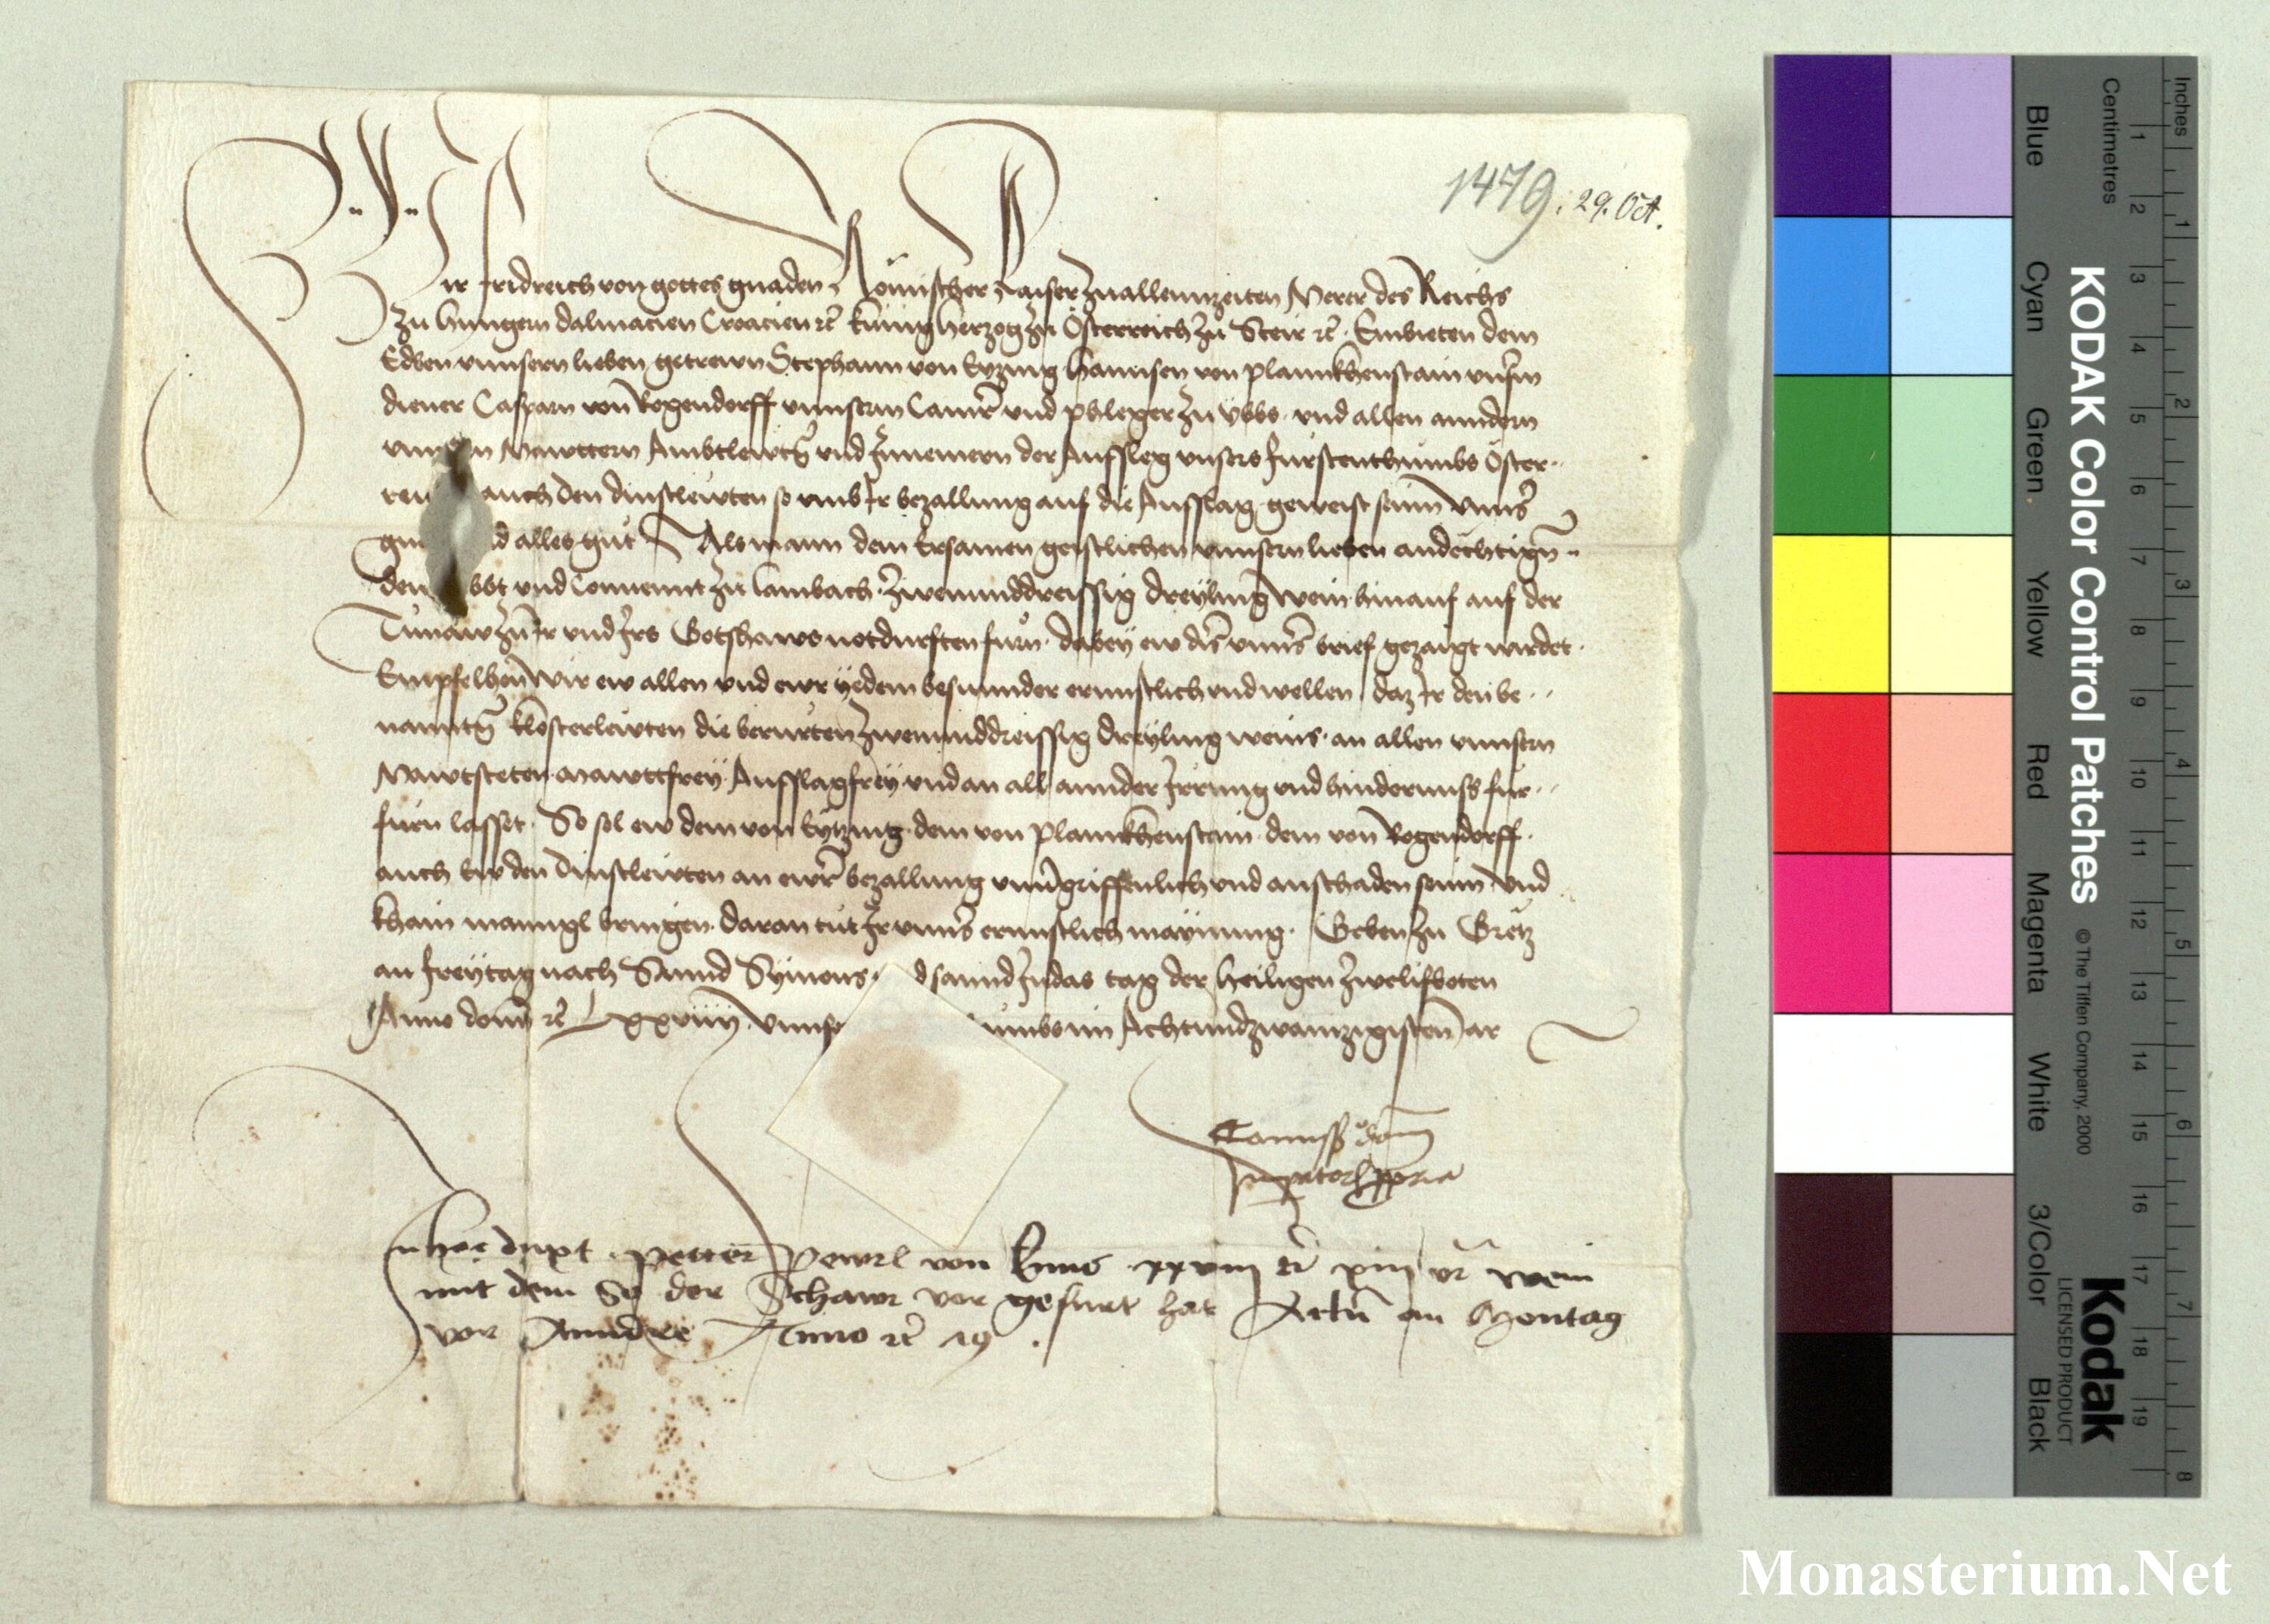 1479. 29. Oct.
Wir Fridreich von gottes gnaden Römischer Kaiser zuallennzeiten Merer des Reichs
zu Hungern Dalmacien Croacien etc̃ kunig Herzog zu Österreich zu Steir etc̃ Embieten dem
Edeln unnsern lieben getrewn Stephann von Eyzing Hannsen von Plannkhenstain unserm
diener Casparn von Rogendorff unnserm Camrer und phleger zu Ybbs und allen anndern
Mawttern Ambtlewtñ und Innemern der Aufsleg unsers Furstenthumbs Öster
auch den dinstlewten so umb Ir bezallung auf die Aufsleg geweist sein unns̃
alles gut Als mann dem Ersamen geistlichen unnsern lieben andechtigñ
dem bbt und Convennt zu Lambach zwenunddreissig dreyling wein hinauf auf der
Tunaw zu Ir und Irs Gotshaws notdurften furn dabey ew dis̃ unns̃ brief gezaigt wirdet
Emphelhen wir ew allen und ewr yedem besunnder ernnstlich und wellen daz Ir den be
nanntñ klosterlewten die berurten zwenunddreissig dreyling weins an allen unnsern
Mawtsteten mawttfrey Aufslagfrey und an all annder Irrung und hindernuss fur
furn lasset So sol ew dem von Eytzing dem von Plannkhenstain dem von Rogendorff
auch ew den Dinstlewten an ewr̃ bezallung unũgriffenlich und an schaden sein und
khain manngl bringen daran tut Ir unns̃ ernnstlich maynung Geben zu Gretz
an Freytag nach Sannd Symons d sannd Judas tag der heiligen zwelifboten
Anno domĩ etc̃ Lxxviiij unns umbs im Achtundzwainzigisten ar
Commiss̃ domĩ
Imp̃atoris p̃pria
duxt Petter Pewrl von Enns xxviij xiij wein
mit dem So der Schawr vor gefurt hat Actũ am Montag
vor Anndre Anno etc̃ 79
Inches
Centimetres
1 2 3 4 5 6 7 8
1 2 3 4 5 6 7 8 9 10 11 12 13 14 15 16 17 18 19
Blue Cyan Green Yellow Red Magenta White 3/Color Black
KODAK Color Control Patches
© The Tiffen Company, 2000
Kodak
LICENSED PRODUCT
Monasterium.Net